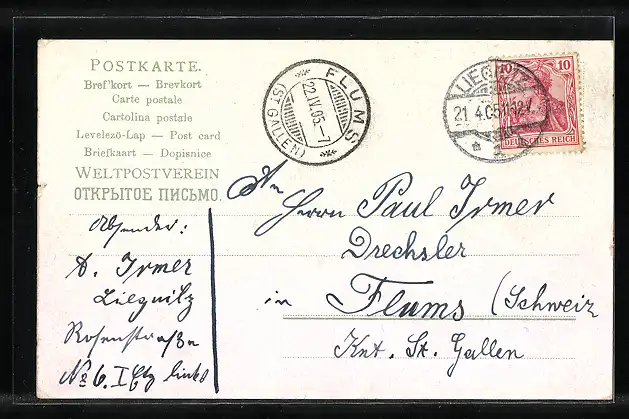 POSTKARTE.
Bref'kort — Brevkort
Carte postale
Cartolina postale
Levelező-Lap — Post card
Briefkaart — Dopisnice
WELTPOSTVEREIN
ОТКРЫТОЕ ПИСЬМО.
FLUMS
22.IV.05.-7
(ST. GALLEN)
LIEGNITZ
21.4.05
10 10
DEUTSCHES REICH
An
Herrn Paul Irmer
Drechsler
in Flums (Schweiz
Knt. St. Gallen
Absender:
A. Irmer
Liegnitz
Rosenstraße
No 6. I Etg links